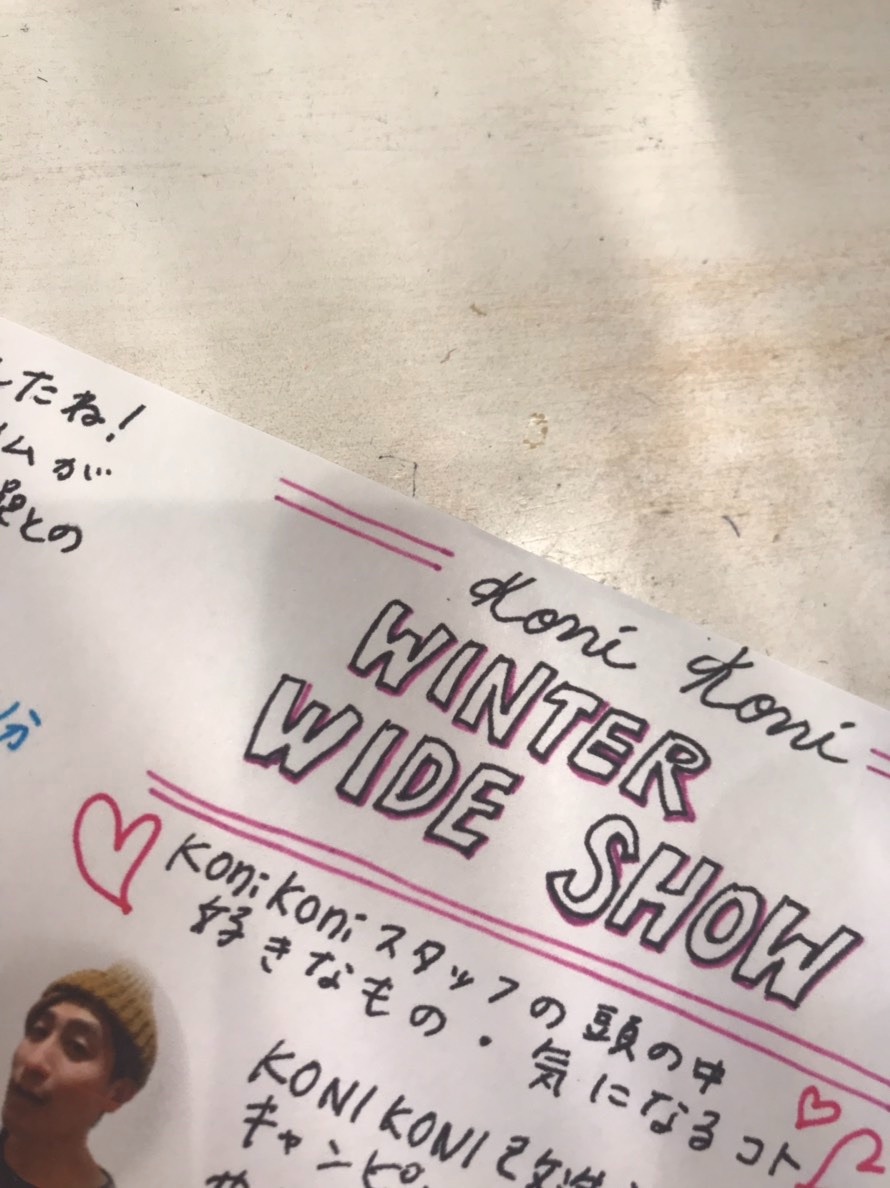 したね!
ムが
との
分
Koni Koni
WINTER
WIDE SHOW
KoniKoniスタッフの頭の中
好きなもの・気になるコト
KONI KONI
キャンピ